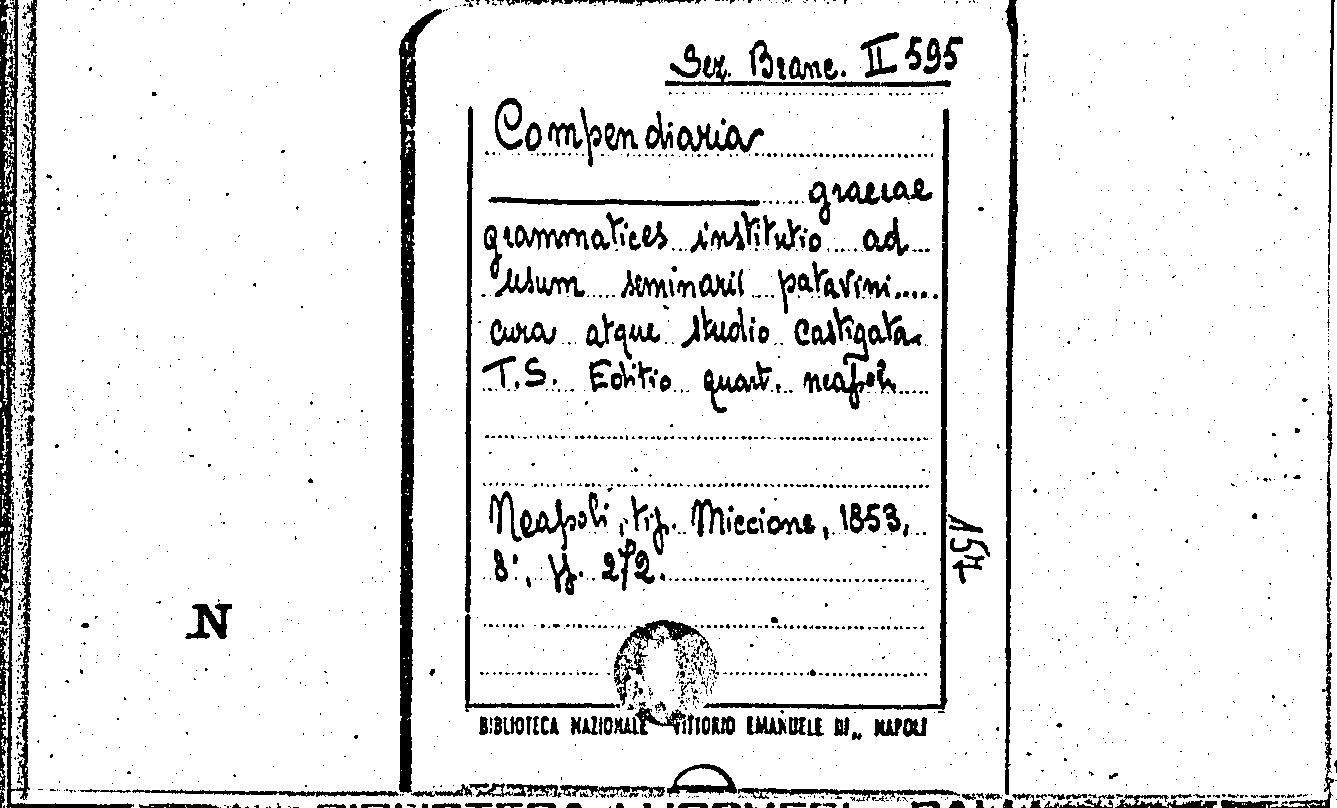 Sez. Branc. II 595
Compendiaria
graecae
grammatices institutio ad
usum seminarii patavini.....
cura atque studio castigata.
T.S. Editio quart. neapol.
Neapoli, tip. Miccione, 1853,
8°, pp. 272.
N
BIBLIOTECA NAZIONALE VITTORIO EMANUELE DI NAPOLI